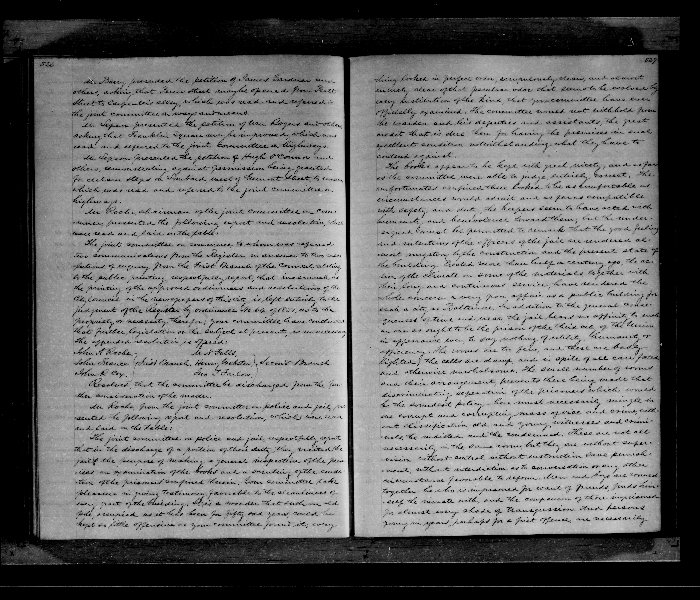 526
Mr. Barry presented the petition of James Gardner and
others, asking that street may be opened from
street to Carpenter's alley, which was read and referred to
the joint committee on ways and means.
Mr. presented the petition of Rogers and others,
asking that Franklin Square may be improved, which was
read and referred to the joint committee on highways.
Mr. presented the petition of Hugh O'Connor and
others, remonstrating against permission being granted
for certain steps on Lombard west of street to
which was read and referred to the joint committee on
highways.
Mr. Roche, chairman of the joint committee on
presented the following report and resolution, which
were read and laid on the table.
The joint committee on to whom was referred
two communications from the Register in answer to two
of enquiry from the First Branch of the Council, relating
to the public printing respectfully report that inasmuch as
the printing of the approved ordinances and resolutions of the
in the newspapers of this city, is left entirely to the
judgment of the Register by ordinance No. of , as to the
propriety or necessity therefor; your committee have concluded
that further legislation on the subject at present, is unnecessary,
the appended resolution is offered.
John A. Roche,
John First Branch, Henry Second Branch
John K.
Resolved that the committee be discharged from the further
consideration of the matter.
Mr. Roche from the joint committee on police and jail, presented
the following report and resolution, which were read
and laid on the table.
The joint committee on police and jail, respectfully report
that in the discharge of a portion of their duty they visited the
jail for the purpose of making a general inspection of the
an examination of the books and a scrutiny of the condition
of the prisoners confined therein. Your committee take
pleasure in giving testimony favorable to the cleanliness of
every part of the building. It is a wonder that such an old
pile, occupied as it has been for fifty odd years could be
kept as little offensive as your committee found it, every
527
thing looked in perfect order, scrupulously clean, and almost
entirely clear of that peculiar odor that seems to be evolved by
every institution of the kind that your committee have ever
officially examined. The committee cannot withhold from
the warden and his deputies and assistants, the great
credit that is due them for having the premises in such
excellent condition notwithstanding what they have to
contend against.
The books appear to be kept with great nicety, and as far
as the committee were able to judge entirely correct. The
unfortunates confined there looked to be as comfortable as
circumstances would admit and as far as compatible
with safety, and duty, the keepers seem to have acted with
humanity and benevolence toward them, but the undersigned
cannot be permitted to remark that the good feelings
and intentions of the officers of the jail are rendered almost
nugatory by the construction and the present state of
the building. Located and built a century ago, the
of the climate on some of the materials together with
their long and continuous service, have rendered the
whole concern a very poor apology as a public building for
such a city as Baltimore. In addition to the general
of time and repair the jail bears no affinity to such
a one as ought to be the prison of the this city, of the
in appearance even, to say nothing of utility, humanity or
efficiency. The rooms are too few, and these are badly
lighted, the cells are damp and in spite of all care, foul
and otherwise unwholesome. The small number of rooms
and their arrangement prevents there being made that
discriminating separation of the prisoners which would
be the soundest policy. There must necessarily mingle in
one corrupt and corrupting mass of vice and crime, without
classification old and young, witnesses and criminals,
the and the condemned. These are not all
necessarily in the same room but they are without supervision,
without control without instruction save punishment,
without interdiction as to conversation or any other
intercourse favorable to depravity. Men and boys are crowded
together, he who is imprisoned for want of friends finds himself
the inmate with, and the companion of those imprisoned
for almost every shade of transgression. And persons
young in years, perhaps for a first offence are necessarily